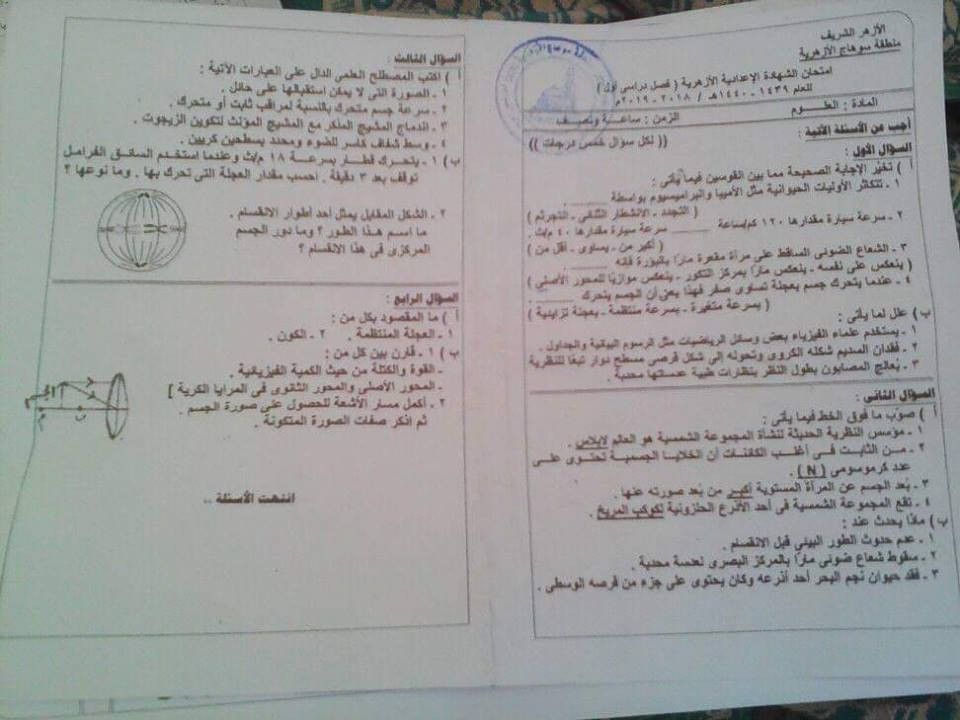 الأزهر الشريف
منطقة سوهاج الأزهرية
امتحان الشهادة الإعدادية الأزهرية ( فصل دراسى أول )
للعام ١٤٣٩ - ١٤٤٠هـ / ٢٠١٨ - ٢٠١٩م
المادة : العلـــوم الزمن : ساعـة ونصـف
أجب عن الأسئلة الآتية : (( لكل سؤال خمس درجات ))
السؤال الأول :
أ ) تخير الإجابة الصحيحة مما بين القوسين فيما يأتى :
١ ـ تتكاثر الأوليات الحيوانية مثل الأميبا والبراميسيوم بواسطة ــــــــ .
( التجدد ـ الانشطار الثنائى ـ التجرثم )
٢ ـ سرعة سيارة مقدارها ١٢٠ كم/ساعة ــــــــ سرعة سيارة مقدارها ٤٠ م/ث .
( أكبر من ـ يساوى ـ أقل من )
٣ ـ الشعاع الضوئى الساقط على مرآة مقعرة مارًا بالبؤرة فإنه ــــــــ .
( ينعكس على نفسه ـ ينعكس مارًا بمركز التكور ـ ينعكس موازيًا للمحور الأصلي )
٤ ـ عندما يتحرك جسم بعجلة تساوى صفر فهذا يعنى أن الجسم يتحرك ــــــــ .
( بسرعة متغيرة ـ بسرعة منتظمة ـ بعجلة تزايدية )
ب) علل لما يأتى :
١ ـ يستخدم علماء الفيزياء بعض وسائل الرياضيات مثل الرسوم البيانية والجداول .
٢ ـ فقدان السديم شكله الكروى وتحوله إلى شكل قرصى مسطح دوار تبعًا للنظرية
٣ ـ يُعالج المصابون بطول النظر بنظارات طبية عدساتها محدبة .
السؤال الثانى :
أ ) صوّب ما فوق الخط فيما يأتى :
١ ـ مؤسس النظرية الحديثة لنشأة المجموعة الشمسية هو العالم لابلاس .
٢ ـ من الثابت فى أغلب الكائنات أن الخلايا الجسمية تحتوى على
عدد كرموسومى ( N ) .
٣ ـ بُعد الجسم عن المرآة المستوية أكبر من بُعد صورته عنها .
٤ ـ تقع المجموعة الشمسية فى أحد الأذرع الحلزونية لكوكب المريخ .
ب) ماذا يحدث عند :
١ ـ عدم حدوث الطور البينى قبل الانقسام .
٢ ـ سقوط شعاع ضوئى مارًا بالمركز البصرى لعدسة محدبة .
٣ ـ فقد حيوان نجم البحر أحد أذرعه وكان يحتوى على جزء من قرصه الوسطى .
السؤال الثالث :
أ ) اكتب المصطلح العلمى الدال على العبارات الآتية :
١ ـ الصورة التى لا يمكن استقبالها على حائل .
٢ ـ سرعة جسم متحرك بالنسبة لمراقب ثابت أو متحرك .
٣ ـ اندماج المشيج المذكر مع المشيج المؤنث لتكوين الزيجوت .
٤ ـ وسط شفاف كاسر للضوء ومحدد بسطحين كريين .
ب) ١ ـ يتحرك قطار بسرعة ١٨ م/ث وعندما استخدم السائق الفرامل
توقف بعد ٣ دقيقة . احسب مقدار العجلة التى تحرك بها . وما نوعها ؟
٢ ـ الشكل المقابل يمثل أحد أطوار الانقسام .
ما اسم هذا الطور ؟ وما دور الجسم
المركزى فى هذا الانقسام ؟
السؤال الرابع :
أ ) ما المقصود بكل من :
١ ـ العجلة المنتظمة . ٢ ـ الكون .
ب) ١ ـ قارن بين كل من :
ـ القوة والكتلة من حيث الكمية الفيزيائية .
ـ المحور الأصلى والمحور الثانوى فى المرايا الكرية ]
٢ ـ أكمل مسار الأشعة للحصول على صورة الجسم .
ثم اذكر صفات الصورة المتكونة .
انتهت الأسئلة ..